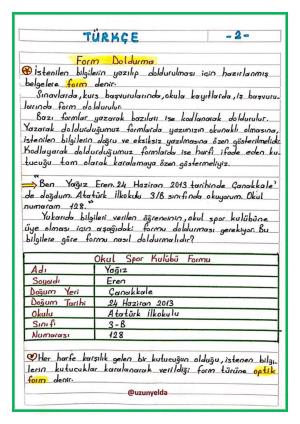 TÜRKÇE
-2-
Form Doldurma
İstenilen bilgilerin yazılıp doldurulması için hazırlanmış
belgelere form denir.
Sınavlarda, kurs başvurularında, okula kayıtlarda, iş başvuru-
larında form doldurulur.
Bazı formlar yazarak bazıları ise kodlanarak doldurulur.
Yazarak doldurduğumuz formlarda yazımızın okunaklı olmasına,
istenilen bilgilerin doğru ve eksiksiz yazılmasına özen gösterilmelidir.
Kodlayarak doldurduğumuz formlarda ise harfi ifade eden ku-
tucuğu tam olarak karalamaya özen göstermeliyiz.
"Ben Yağız Eren. 24 Haziran 2013 tarihinde Çanakkale'
de doğdum. Atatürk İlkokulu 3/B sınıfında okuyorum. Okul
numaram 128."
Yukarıda bilgileri verilen öğrencinin, okul spor kulübüne
üye olması için aşağıdaki formu doldurması gerekiyor. Bu
bilgilere göre formu nasıl doldurmalıdır?
Okul Spor Kulübü Formu
Adı Yağız
Soyadı Eren
Doğum Yeri Çanakkale
Doğum Tarihi 24 Haziran 2013
Okulu Atatürk İlkokulu
Sınıfı 3-B
Numarası 128
Her harfe karşılık gelen bir kutucuğun olduğu, istenen bilgi-
lerin kutucuklar karalanarak verildiği form türüne optik
form denir.
@uzunyelda